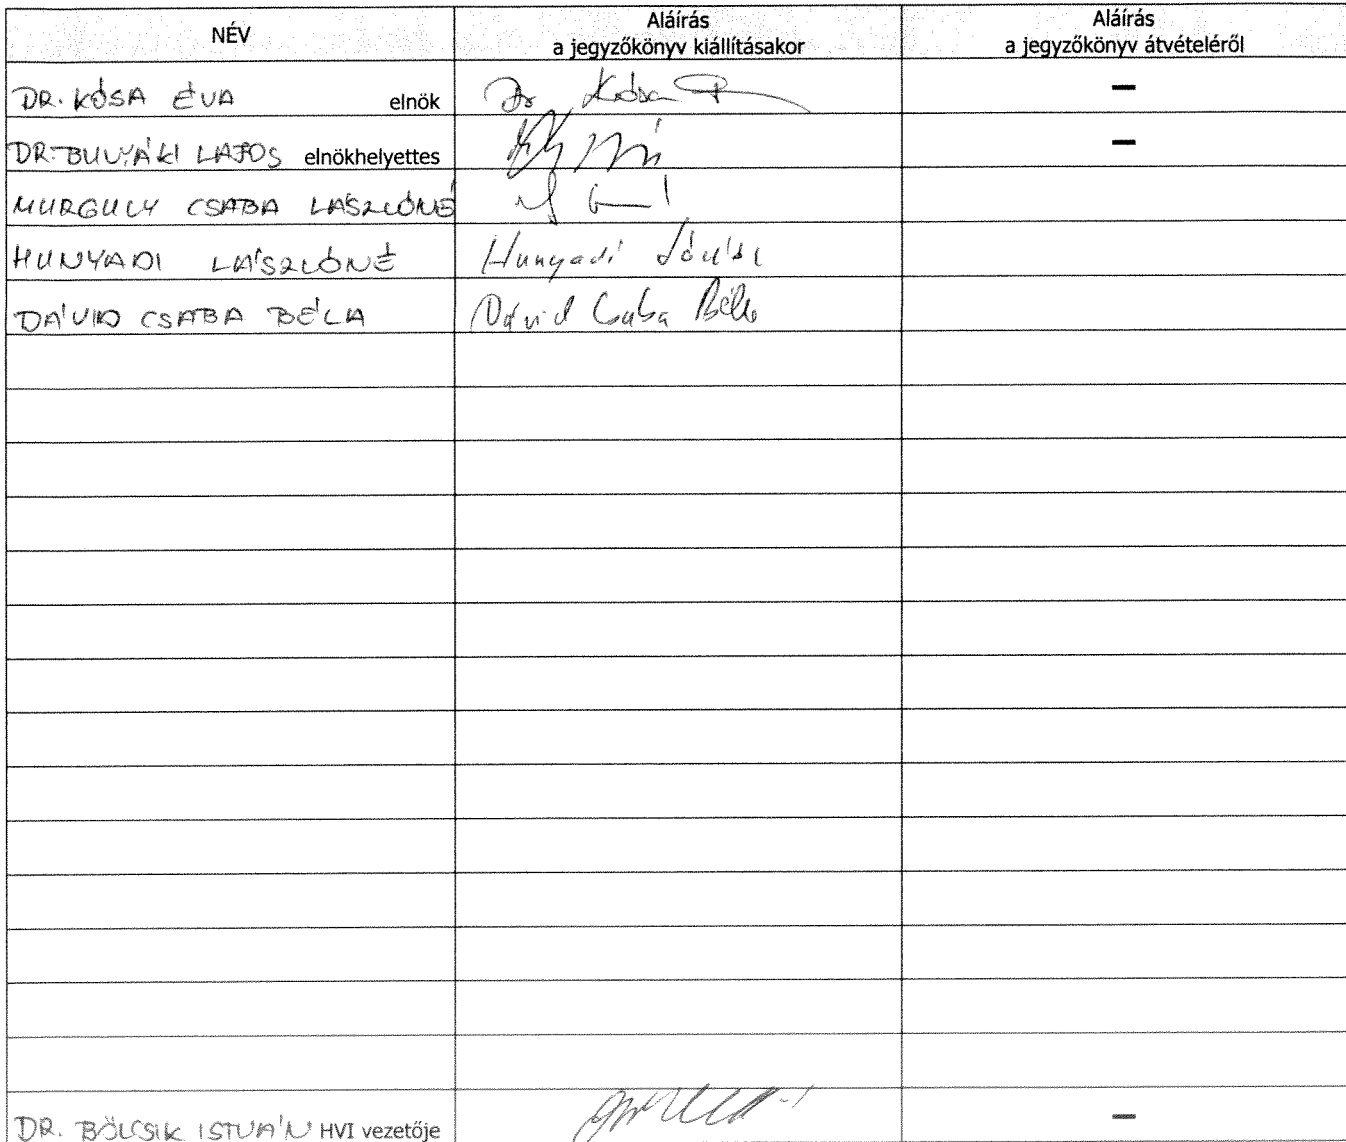 NÉV
Aláírás
a jegyzőkönyv kiállításakor
Aláírás
a jegyzőkönyv átvételéről
DR. KÓSA ÉVA elnök Dr Kósa
–
DR. BULYÁKI LAJOS elnökhelyettes
–
MURGULY CSABA LÁSZLÓNÉ
HUNYADI LÁSZLÓNÉ Hunyadi
DÁVID CSABA BÉLA Dávid Csaba Béla
DR. BÖLCSIK ISTVÁN HVI vezetője
–